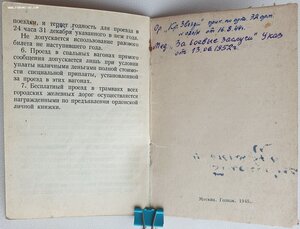 поездки, и теряет годность для проезда в
24 часа 31 декабря указанного в нем года.
Не допускается использование разового
билета не наступившего года.
6. Проезд в спальных вагонах прямого
сообщения допускается лишь при условии
уплаты наличными деньгами полной стоимости
специальной приплаты, установленной
за проезд в этих вагонах.
7. Бесплатный проезд в трамваях всех
городских железных дорог осуществляется
награжденными по предъявлении орденской
личной книжки.
Ор. „Кр. Звезда"
от 16.8.44г.
Мед. „За боевые заслуги" Указ
от 13.06.1952г.
Москва. Гознак. 1945.